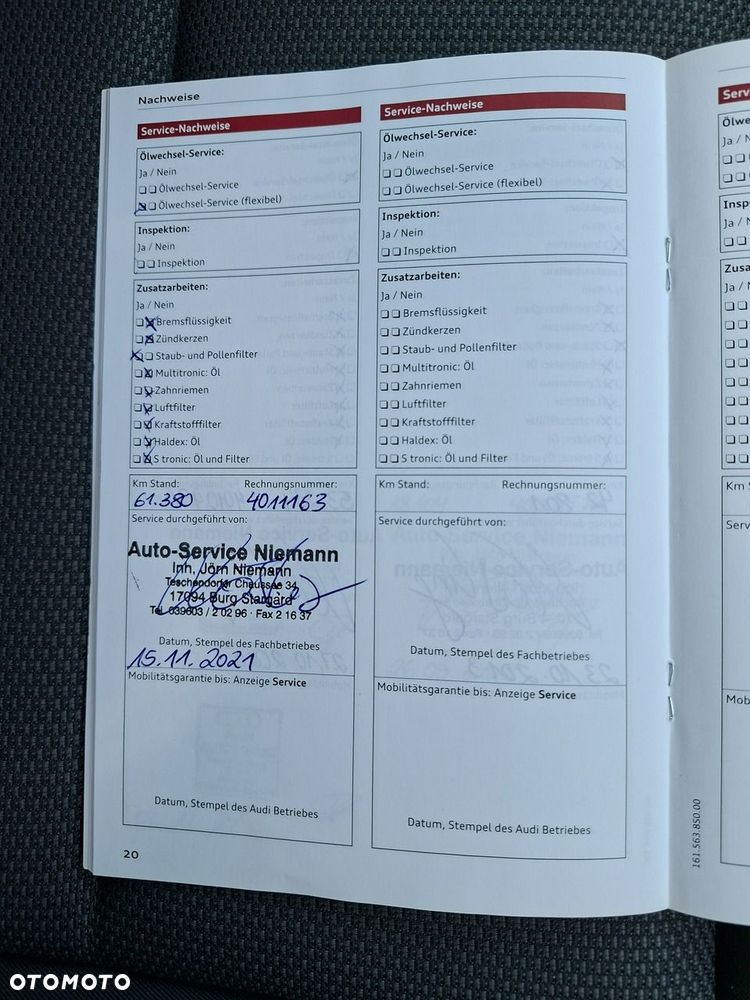 Nachweise
Service-Nachweise
Ölwechsel-Service:
Ja / Nein
Ölwechsel-Service
Ölwechsel-Service (flexibel)
Inspektion:
Ja / Nein
Inspektion
Zusatzarbeiten:
Ja / Nein
Bremsflüssigkeit
Zündkerzen
Staub- und Pollenfilter
Multitronic: Öl
Zahnriemen
Luftfilter
Kraftstofffilter
Haldex: Öl
S tronic: Öl und Filter
Km Stand: Rechnungsnummer:
61.380 4011163
Service durchgeführt von:
Auto-Service Niemann
Inh. Jörn Niemann
Teschendorfer Chaussee 34
17094 Burg Stargard
Tel. 039603 / 2 02 96 · Fax 2 16 37
Datum, Stempel des Fachbetriebes
15.11.2021
Mobilitätsgarantie bis: Anzeige Service
Datum, Stempel des Audi Betriebes
20
Service-Nachweise
Ölwechsel-Service:
Ja / Nein
Ölwechsel-Service
Ölwechsel-Service (flexibel)
Inspektion:
Ja / Nein
Inspektion
Zusatzarbeiten:
Ja / Nein
Bremsflüssigkeit
Zündkerzen
Staub- und Pollenfilter
Multitronic: Öl
Zahnriemen
Luftfilter
Kraftstofffilter
Haldex: Öl
S tronic: Öl und Filter
Km Stand: Rechnungsnummer:
Service durchgeführt von:
Datum, Stempel des Fachbetriebes
Mobilitätsgarantie bis: Anzeige Service
Datum, Stempel des Audi Betriebes
161.563.850.00
Serv
Ölwe
Ja /
Insp
Ja /
Zusa
Ja /
Km S
Serv
Mob
OTOMOTO